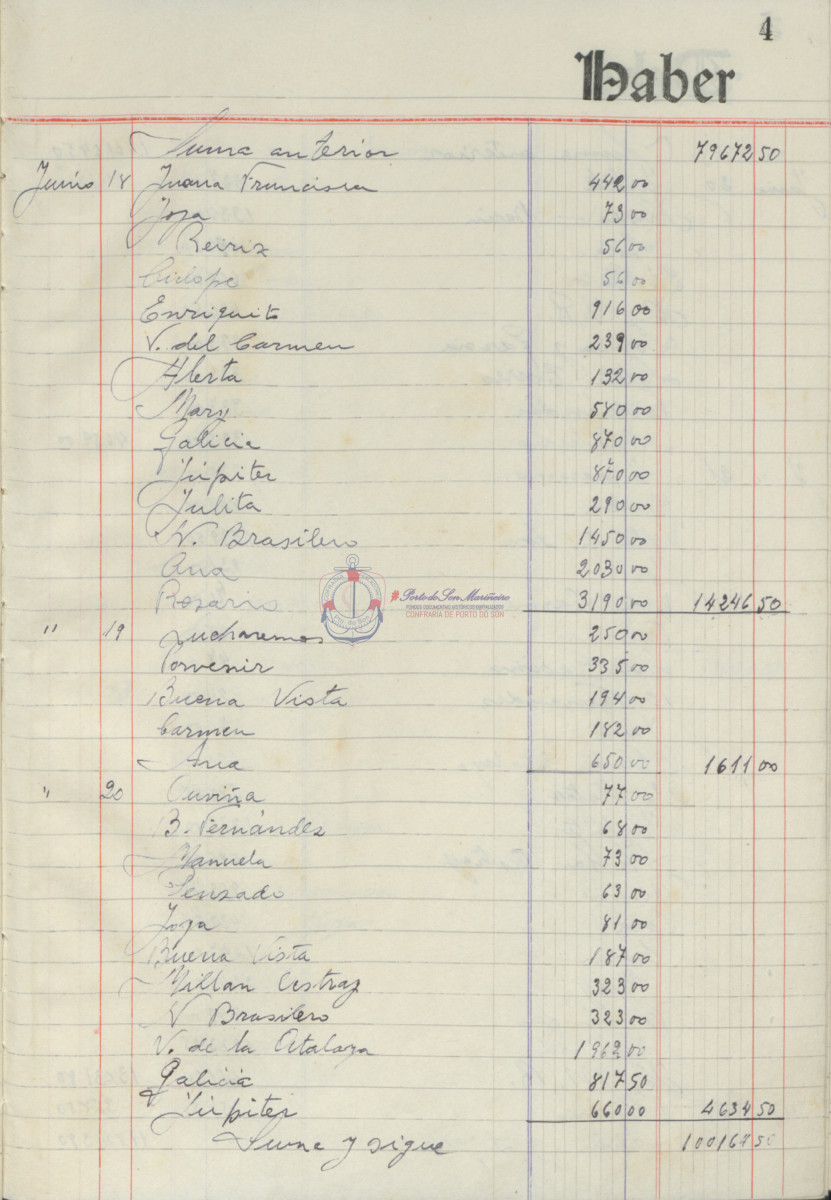 4
Haber
Suma anterior 79672 50
Junio 18 Juana Francisca 442 00
Joya 73 00
Reiriz 56 00
Ciclope 56 00
Enriquito 916 00
V. del Carmen 239 00
Alerta 132 00
Mary 580 00
Galicia 870 00
Júpiter 870 00
Julita 290 00
N. Brasilero 1450 00
Ana 2030 00
Rosario 3190 00 14246 50
" 19 Lucharemos 250 00
Porvenir 335 00
Buena Vista 194 00
Carmen 182 00
Ana 650 00 1611 00
" 20 Curiña 77 00
B. Fernández 68 00
Manuela 73 00
Senzado 63 00
Joya 81 00
Buena Vista 187 00
Millan Astray 323 00
N Brasilero 323 00
V. de la Atalaya 1962 00
Galicia 817 50
Júpiter 660 00 4634 50
Suma y sigue 100167 50
Porto do Son Mariñeiro
CONFRARÍA DE PORTO DO SON